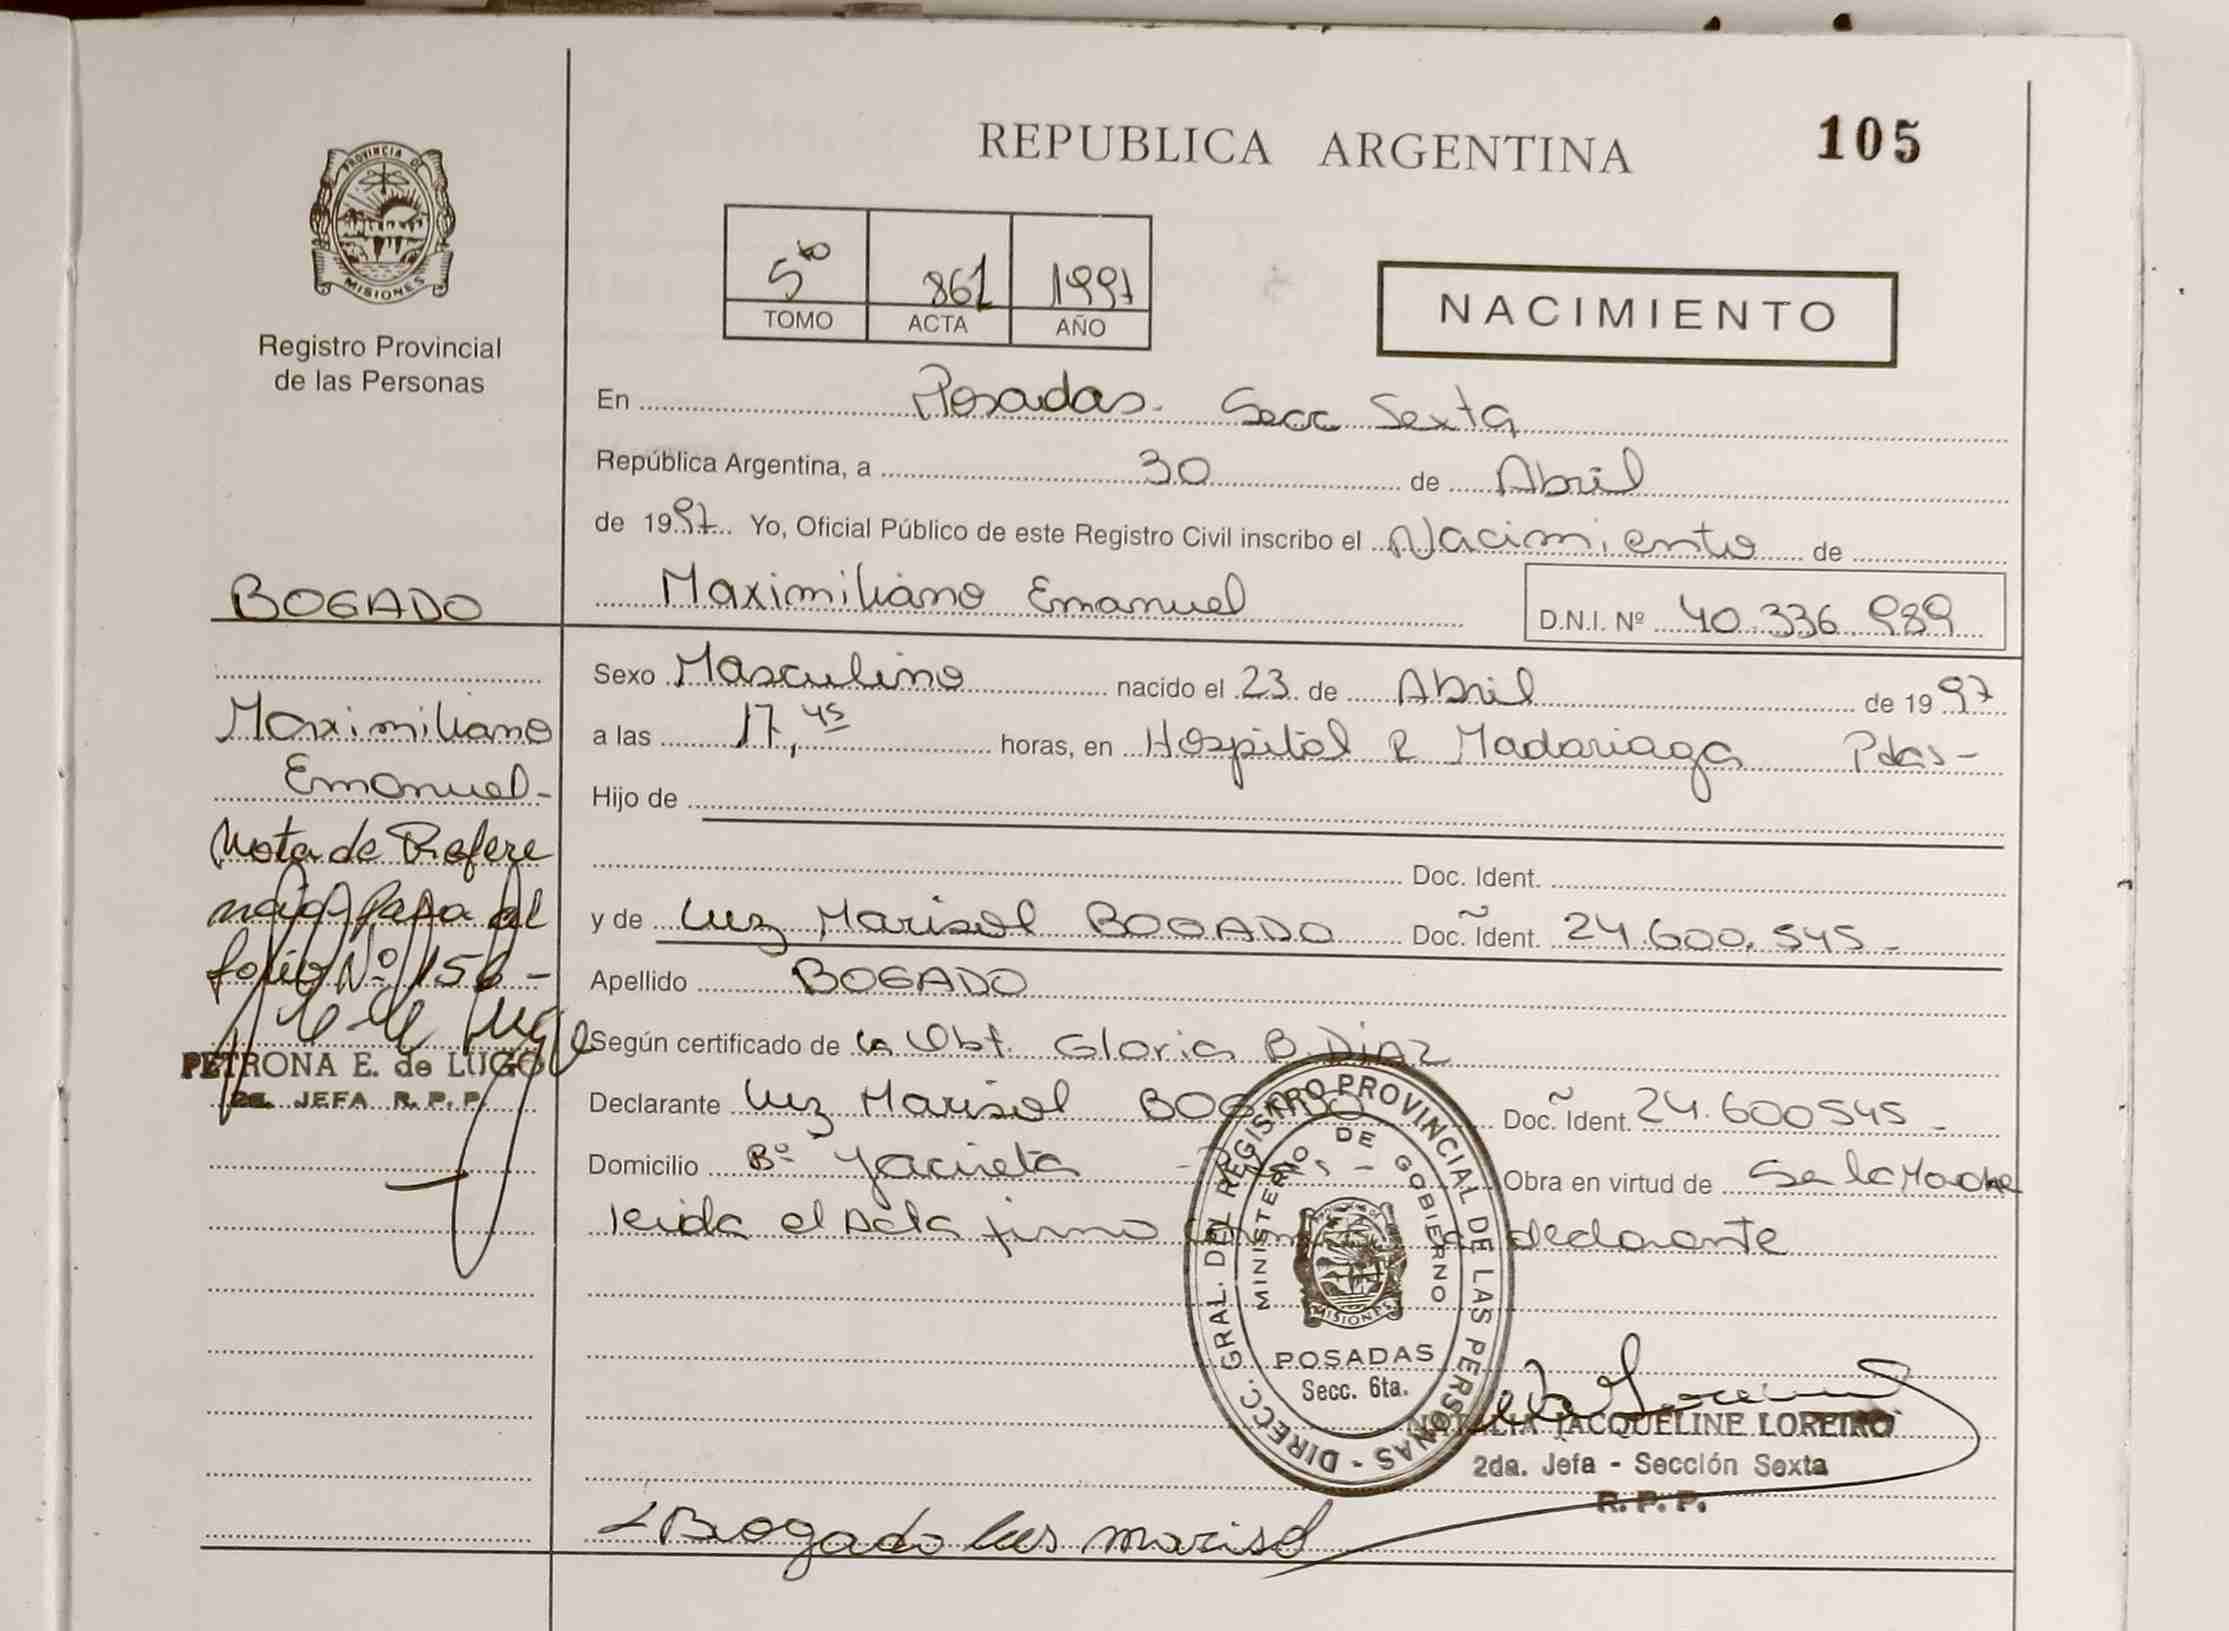 REPUBLICA ARGENTINA
105
PROVINCIA DE
MISIONES
Registro Provincial
de las Personas
5to 861 1997
TOMO ACTA AÑO
NACIMIENTO
En Posadas. Secc Sexta
República Argentina, a 30 de Abril
de 1997 Yo, Oficial Público de este Registro Civil inscribo el Nacimiento de
Maximiliano Emanuel D.N.I. Nº 40.336.989
Sexo Masculino nacido el 23 de Abril de 1997
a las 17,45 horas, en Hospital R Madariaga Pdas-
Hijo de
Doc. Ident.
y de Luz Marisol BOGADO Doc. Ident. 24.600.545-
Apellido BOGADO
Según certificado de la Obt. Gloria B. DIAZ
Declarante Luz Marisol BOGADO Doc. Ident. 24.600545-
Domicilio Bº Yacireta - - Obra en virtud de Se la Madre
leida el Acta firma la declarante
BOGADO
Maximiliano
Emanuel-
Nota de Refere
ncia Pasa al
folio Nº 156-
PETRONA E. de LUGO
2a. JEFA R. P. P.
DIRECC. GRAL. DEL REGISTRO PROVINCIAL DE LAS PERSONAS -
MINISTERIO DE GOBIERNO
MISIONES
POSADAS
Secc. 6ta.
NATALIA JACQUELINE LOREIRO
2da. Jefa - Sección Sexta
R. P. P.
Bogado lus marisol